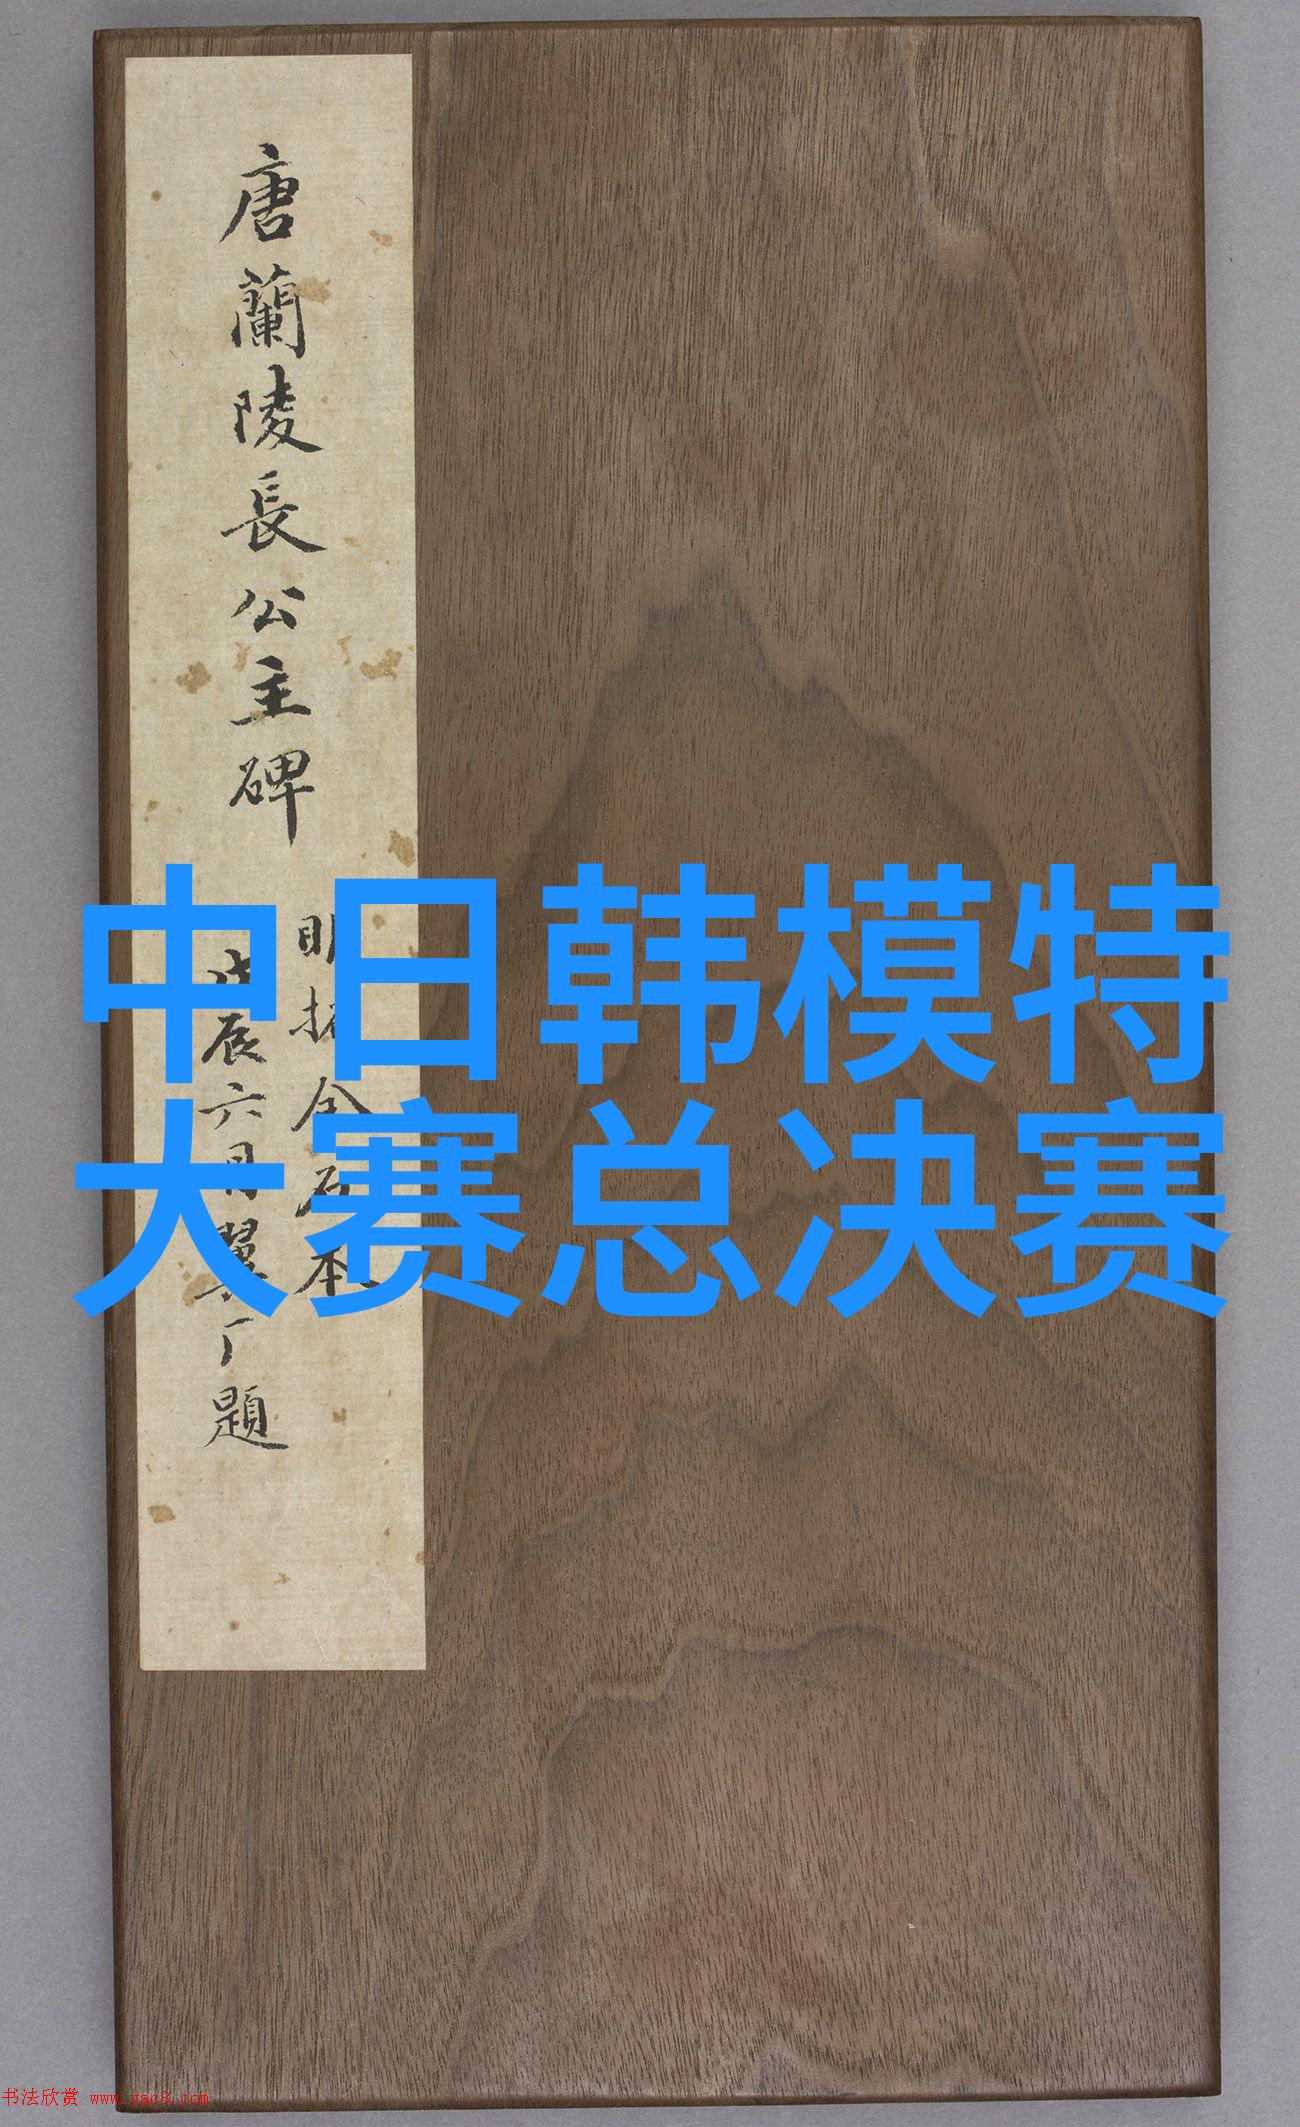 唐蘭陵長公主碑
明拓全石本
戊辰六月翼厂題
中日韩模特
大赛总决赛
书法欣赏 www.yac8.com